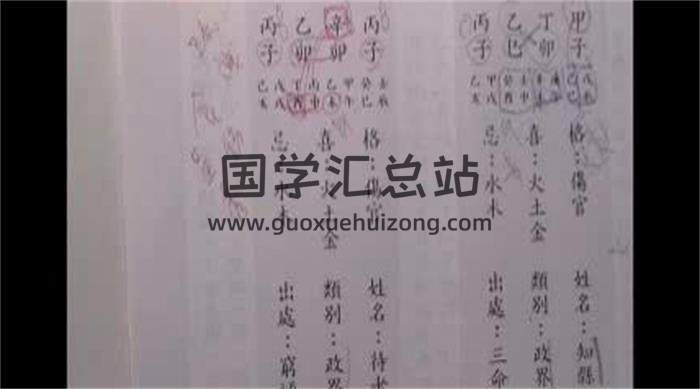 甲子
丁卯
乙巳
丙子
戊辰
己巳
庚午
辛未
壬申
癸酉
甲戌
乙亥
格：傷官
喜：火土金
忌：水木
姓名：知縣
類別：政界
出處：三命
丙子
辛卯
乙卯
丙子
壬辰
癸巳
甲午
乙未
丙申
丁酉
戊戌
己亥
格：官
喜：火土金
忌：
姓名：待
類別：政界
出處：窮
国学汇总站
www.guoxuehuizong.com